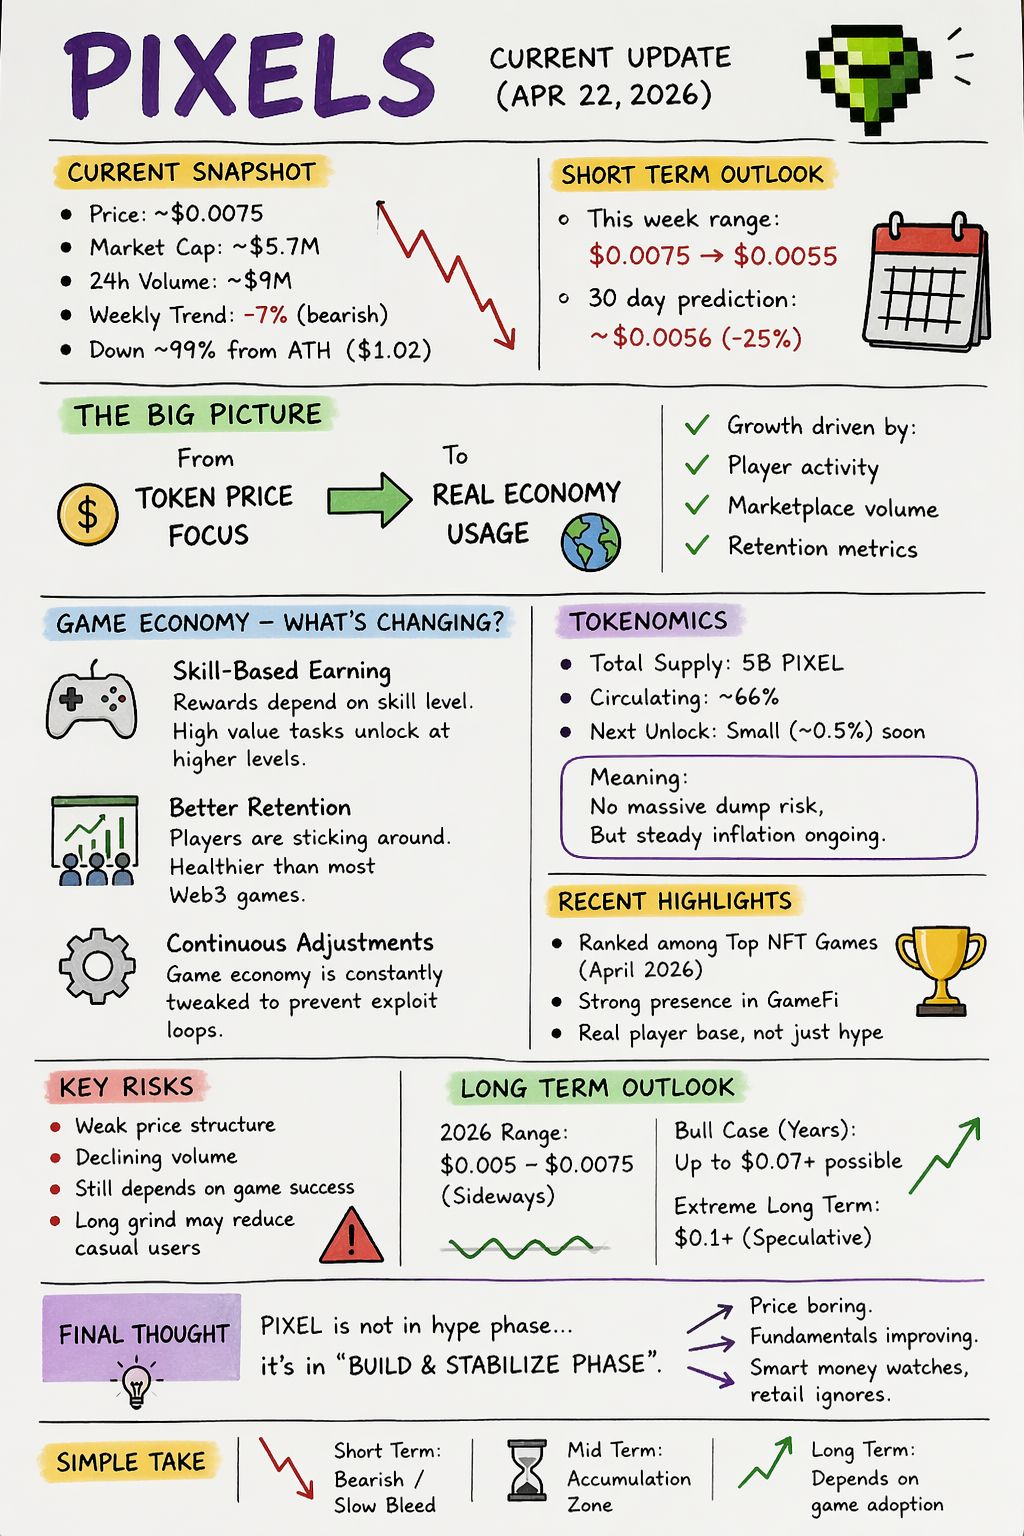 PIXELS
CURRENT UPDATE
(APR 22, 2026)
CURRENT SNAPSHOT
Price: ~$0.0075
Market Cap: ~$5.7M
24h Volume: ~$9M
Weekly Trend: -7% (bearish)
Down ~99% from ATH ($1.02)
SHORT TERM OUTLOOK
This week range:
$0.0075 → $0.0055
30 day prediction:
~$0.0056 (-25%)
THE BIG PICTURE
From
$
TOKEN PRICE
FOCUS
To
REAL ECONOMY
USAGE
✓ Growth driven by:
✓ Player activity
✓ Marketplace volume
✓ Retention metrics
GAME ECONOMY – WHAT'S CHANGING?
Skill-Based Earning
Rewards depend on skill level.
High value tasks unlock at
higher levels.
Better Retention
Players are sticking around.
Healthier than most
Web3 games.
Continuous Adjustments
Game economy is constantly
tweaked to prevent exploit
loops.
TOKENOMICS
Total Supply: 5B PIXEL
Circulating: ~66%
Next Unlock: Small (~0.5%) soon
Meaning:
No massive dump risk,
But steady inflation ongoing.
RECENT HIGHLIGHTS
Ranked among Top NFT Games
(April 2026)
Strong presence in GameFi
Real player base, not just hype
KEY RISKS
Weak price structure
Declining volume
Still depends on game success
Long grind may reduce
casual users
!
LONG TERM OUTLOOK
2026 Range:
$0.005 – $0.0075
(Sideways)
Bull Case (Years):
Up to $0.07+ possible
Extreme Long Term:
$0.1+ (Speculative)
FINAL THOUGHT
PIXEL is not in hype phase...
it's in "BUILD & STABILIZE PHASE".
Price boring.
Fundamentals improving.
Smart money watches,
retail ignores.
SIMPLE TAKE
Short Term:
Bearish /
Slow Bleed
Mid Term:
Accumulation
Zone
Long Term:
Depends on
game adoption